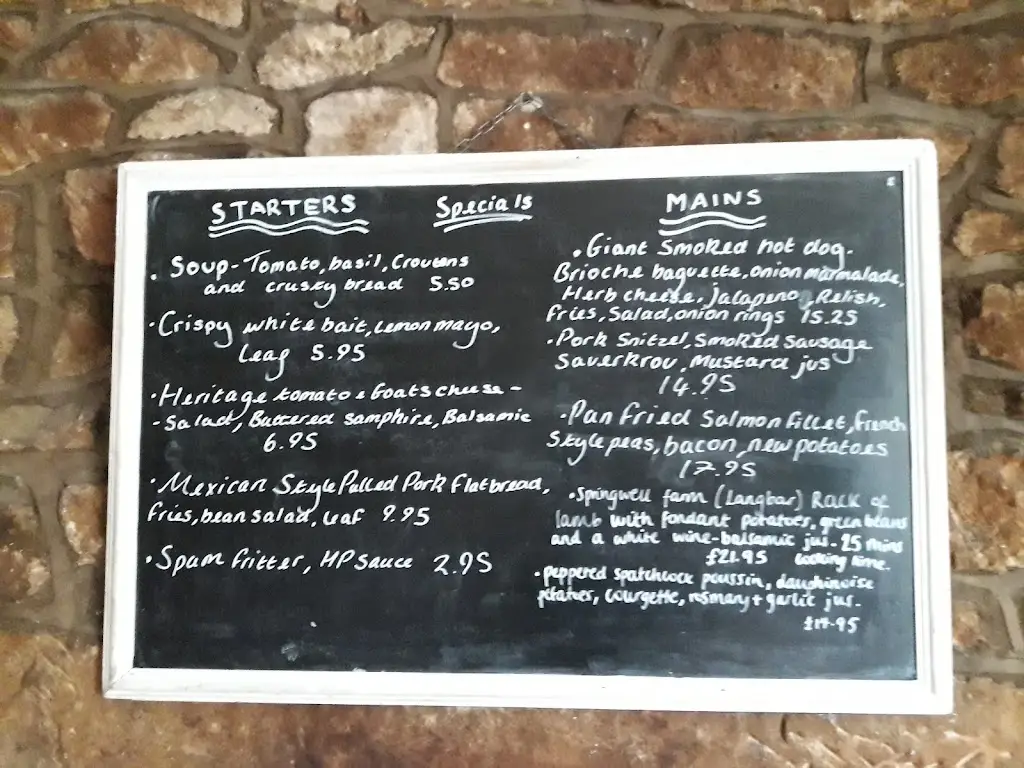 STARTERS
Specials
MAINS
. Soup-Tomato, basil, Croutens
and crusky bread 5.50
·Crispy white bait, Lemon mayo,
Leaf 5.95
·Heritage tomato & Goats cheese -
-Salad, Buttered samphire, Balsamic
6.95
·Mexican Style Pulled Pork flatbread,
fries, bean salad, leaf 9.95
·Spam fritter, HP Sauce 2.95
.Giant Smoked hot dog.
Brioche baguette, onion marmalade,
Herb cheese, jalapeno, Relish,
fries, Salad, onion rings 15.25
·Pork Snitzel, Smoked Sausage
Saverkrou, Mustard jus
14.95
·Pan fried Salmon fillet, french
Style peas, bacon, new potatoes
17.95
·Springwell farm (Langbar) Rack of
lamb with fondant potatoes, green beans
and a white wine-balsamic jus. 25 mins
£21.95 cooking time.
·peppered spatchcock poussin, dauphinoise
potatoes, courgette, rosmary + garlic jus.